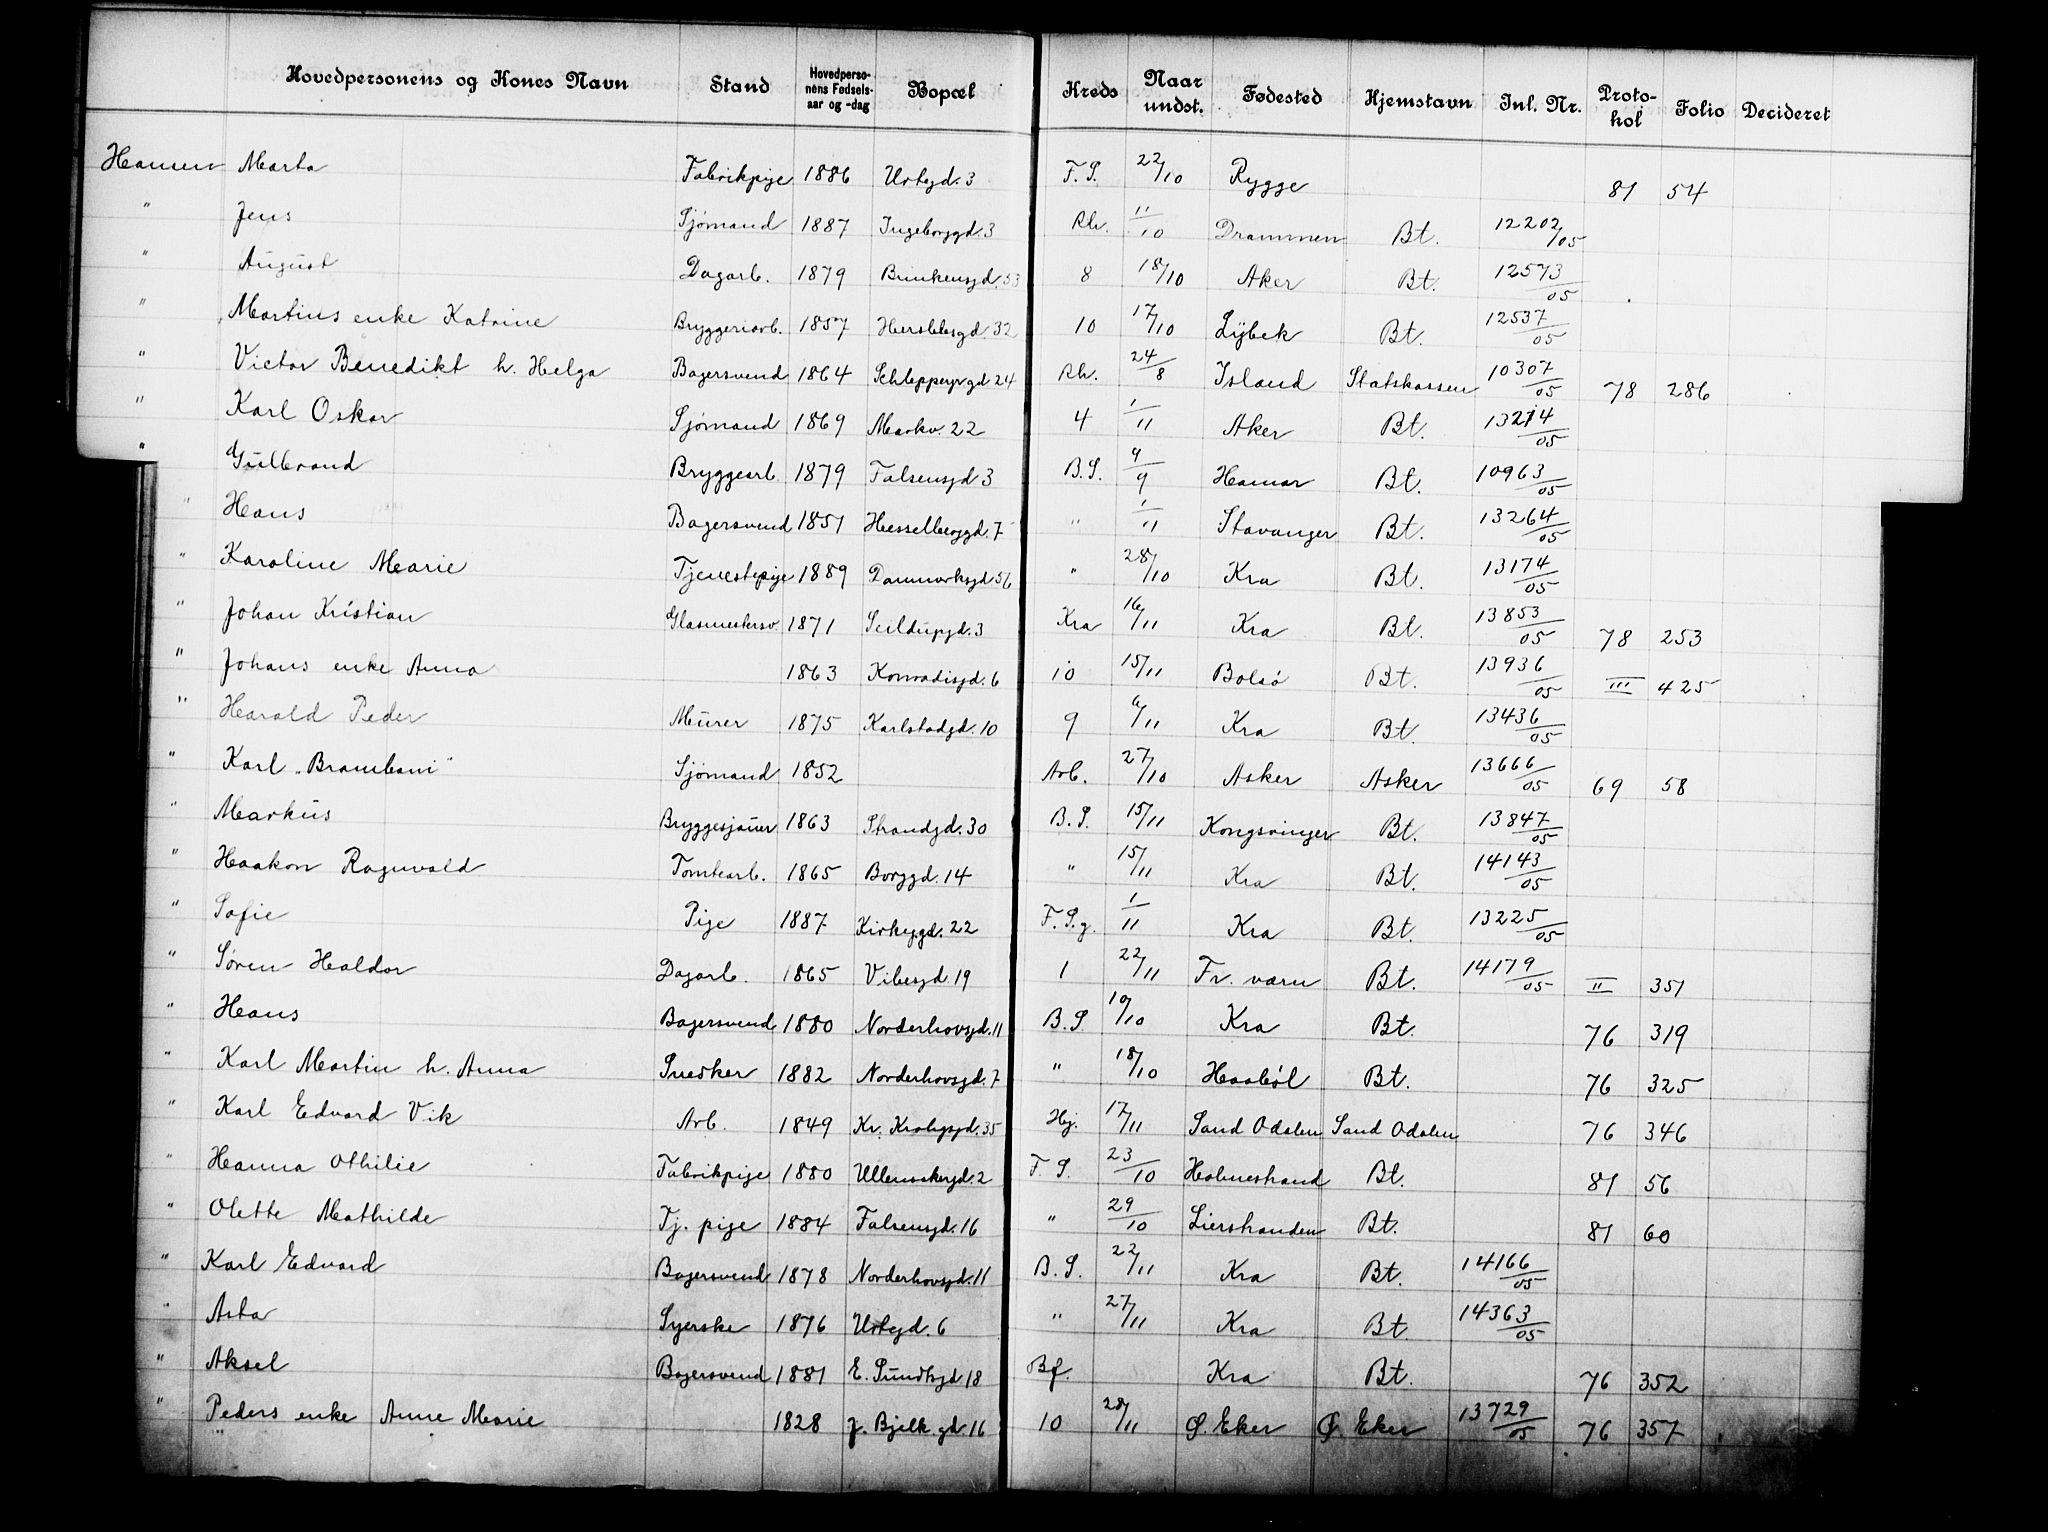 Hovedpersonens og Kones Navn Stand Hovedperso-nens Fødsels-aar og -dag Bopæl Kreds Naar undst. Fødested Hjemstavn Inl. Nr. Proto-kol Folio Decideret
Hansen Marta Fabrikpige 1886 Urtegd. 3 F. S. 22/10 Rygge 81 54
" Jens Sjømand 1887 Ingeborggd. 3 Rh. 11/10 Drammen Bt. 12202/05
" August Dagarb. 1879 Brinkensgd. 53 8 18/10 Aker Bt. 12573/05
" Martins enke Katrine Bryggeriarb. 1857 Herslebsgd. 32 10 17/10 Lÿbek Bt. 12537/05
" Victor Benedikt h. Helga Bagersvend 1864 Schleppegr gd 24 Rh. 24/8 Island Statskassen 10307/05 78 286
" Karl Oskar Sjømand 1869 Markv. 22 4 1/11 Aker Bt. 13214/05
" Gulbrand Bryggearb 1879 Falsensgd 3 B. S. 9/9 Hamar Bt. 10963/05
" Hans Bagersvend 1851 Hesselberggd. 7 " 1/11 Stavanger Bt. 13264/05
" Karoline Marie Tjenestepige 1889 Danmarksgd 56 " 28/10 Kra Bt. 13174/05
" Johan Kristian Glasmestersv. 1871 Seildugsgd. 3 Kra 16/11 Kra Bt. 13853/05 78 253
" Johans enke Anna 1863 Konradisgd. 6 10 15/11 Bolsö Bt. 13936/05 III 425
" Harald Peder Murer 1875 Karlstadgd. 10 9 6/11 Kra Bt. 13436/05
" Karl „Brambani" Sjømand 1852 Arb. 27/10 Asker Asker 13666/05 69 58
" Markus Bryggesjauer 1863 Strandgd. 30 B. S. 15/11 Kongsvinger Bt. 13847/05
" Haakon Ragnvald Tomtearb. 1865 Borggd. 14 " 15/11 Kra Bt. 14143/05
" Sofie Pige 1887 Kirkegd. 22 F. S. g. 1/11 Kra Bt. 13225/05
" Søren Haldor Dagarb. 1865 Vibesgd 19 1 22/11 Fr. værn Bt. 14179/05 II 351
" Hans Bagersvend 1880 Norderhovsgd. 11 B. S. 19/10 Kra Bt. 76 319
" Karl Martin h. Anna Snedker 1882 Norderhovsgd. 7 " 18/10 Haabøl Bt. 76 325
" Karl Edvard Vik Arb. 1849 Kr. Krohgsgd. 35 Hj. 17/11 Sand Odalen Sand Odalen 76 346
" Hanna Othilie Fabrikpige 1880 Ullensakergd. 2 F. S. 23/10 Holmestrand Bt. 81 56
" Olette Mathilde Tj. pige 1884 Falsensgd. 16 " 29/10 Lierstranden Bt. 81 60
" Karl Edvard Bagersvend 1878 Norderhovsgd. 11 B. S. 22/11 Kra Bt. 14166/05
" Asta Syerske 1876 Urtegd. 6 " 27/11 Kra Bt. 14363/05
" Aksel Bagersvend 1881 E. Sundtsgd 18 Bf. Kra Bt. 76 352
" Peders enke Anne Marie 1828 J. Bjelk. gd. 16 10 28/11 Ø. Eker Ø. Eker 13729/05 76 357